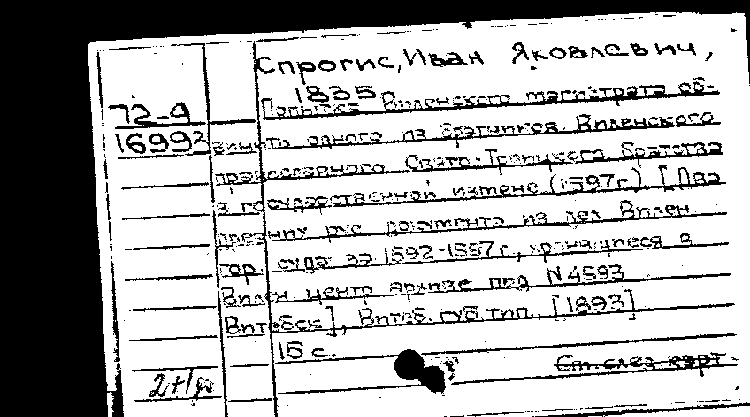 Спрогис, Иван Яковлевич,
1835
72-9
Попытка Виленского магистрата об-
16992
винить одного из братчиков Виленского
православного Свято-Троицкого братства
в государственной измене (1597г). [Два
древних рус документа из дел Вилен
гор. суда за 1592-1597 г., хранящиеся в
Вилен центр архиве под N 4593
Витебск], Витеб. губ. тип. [1893]
15 с.
См. след карт.